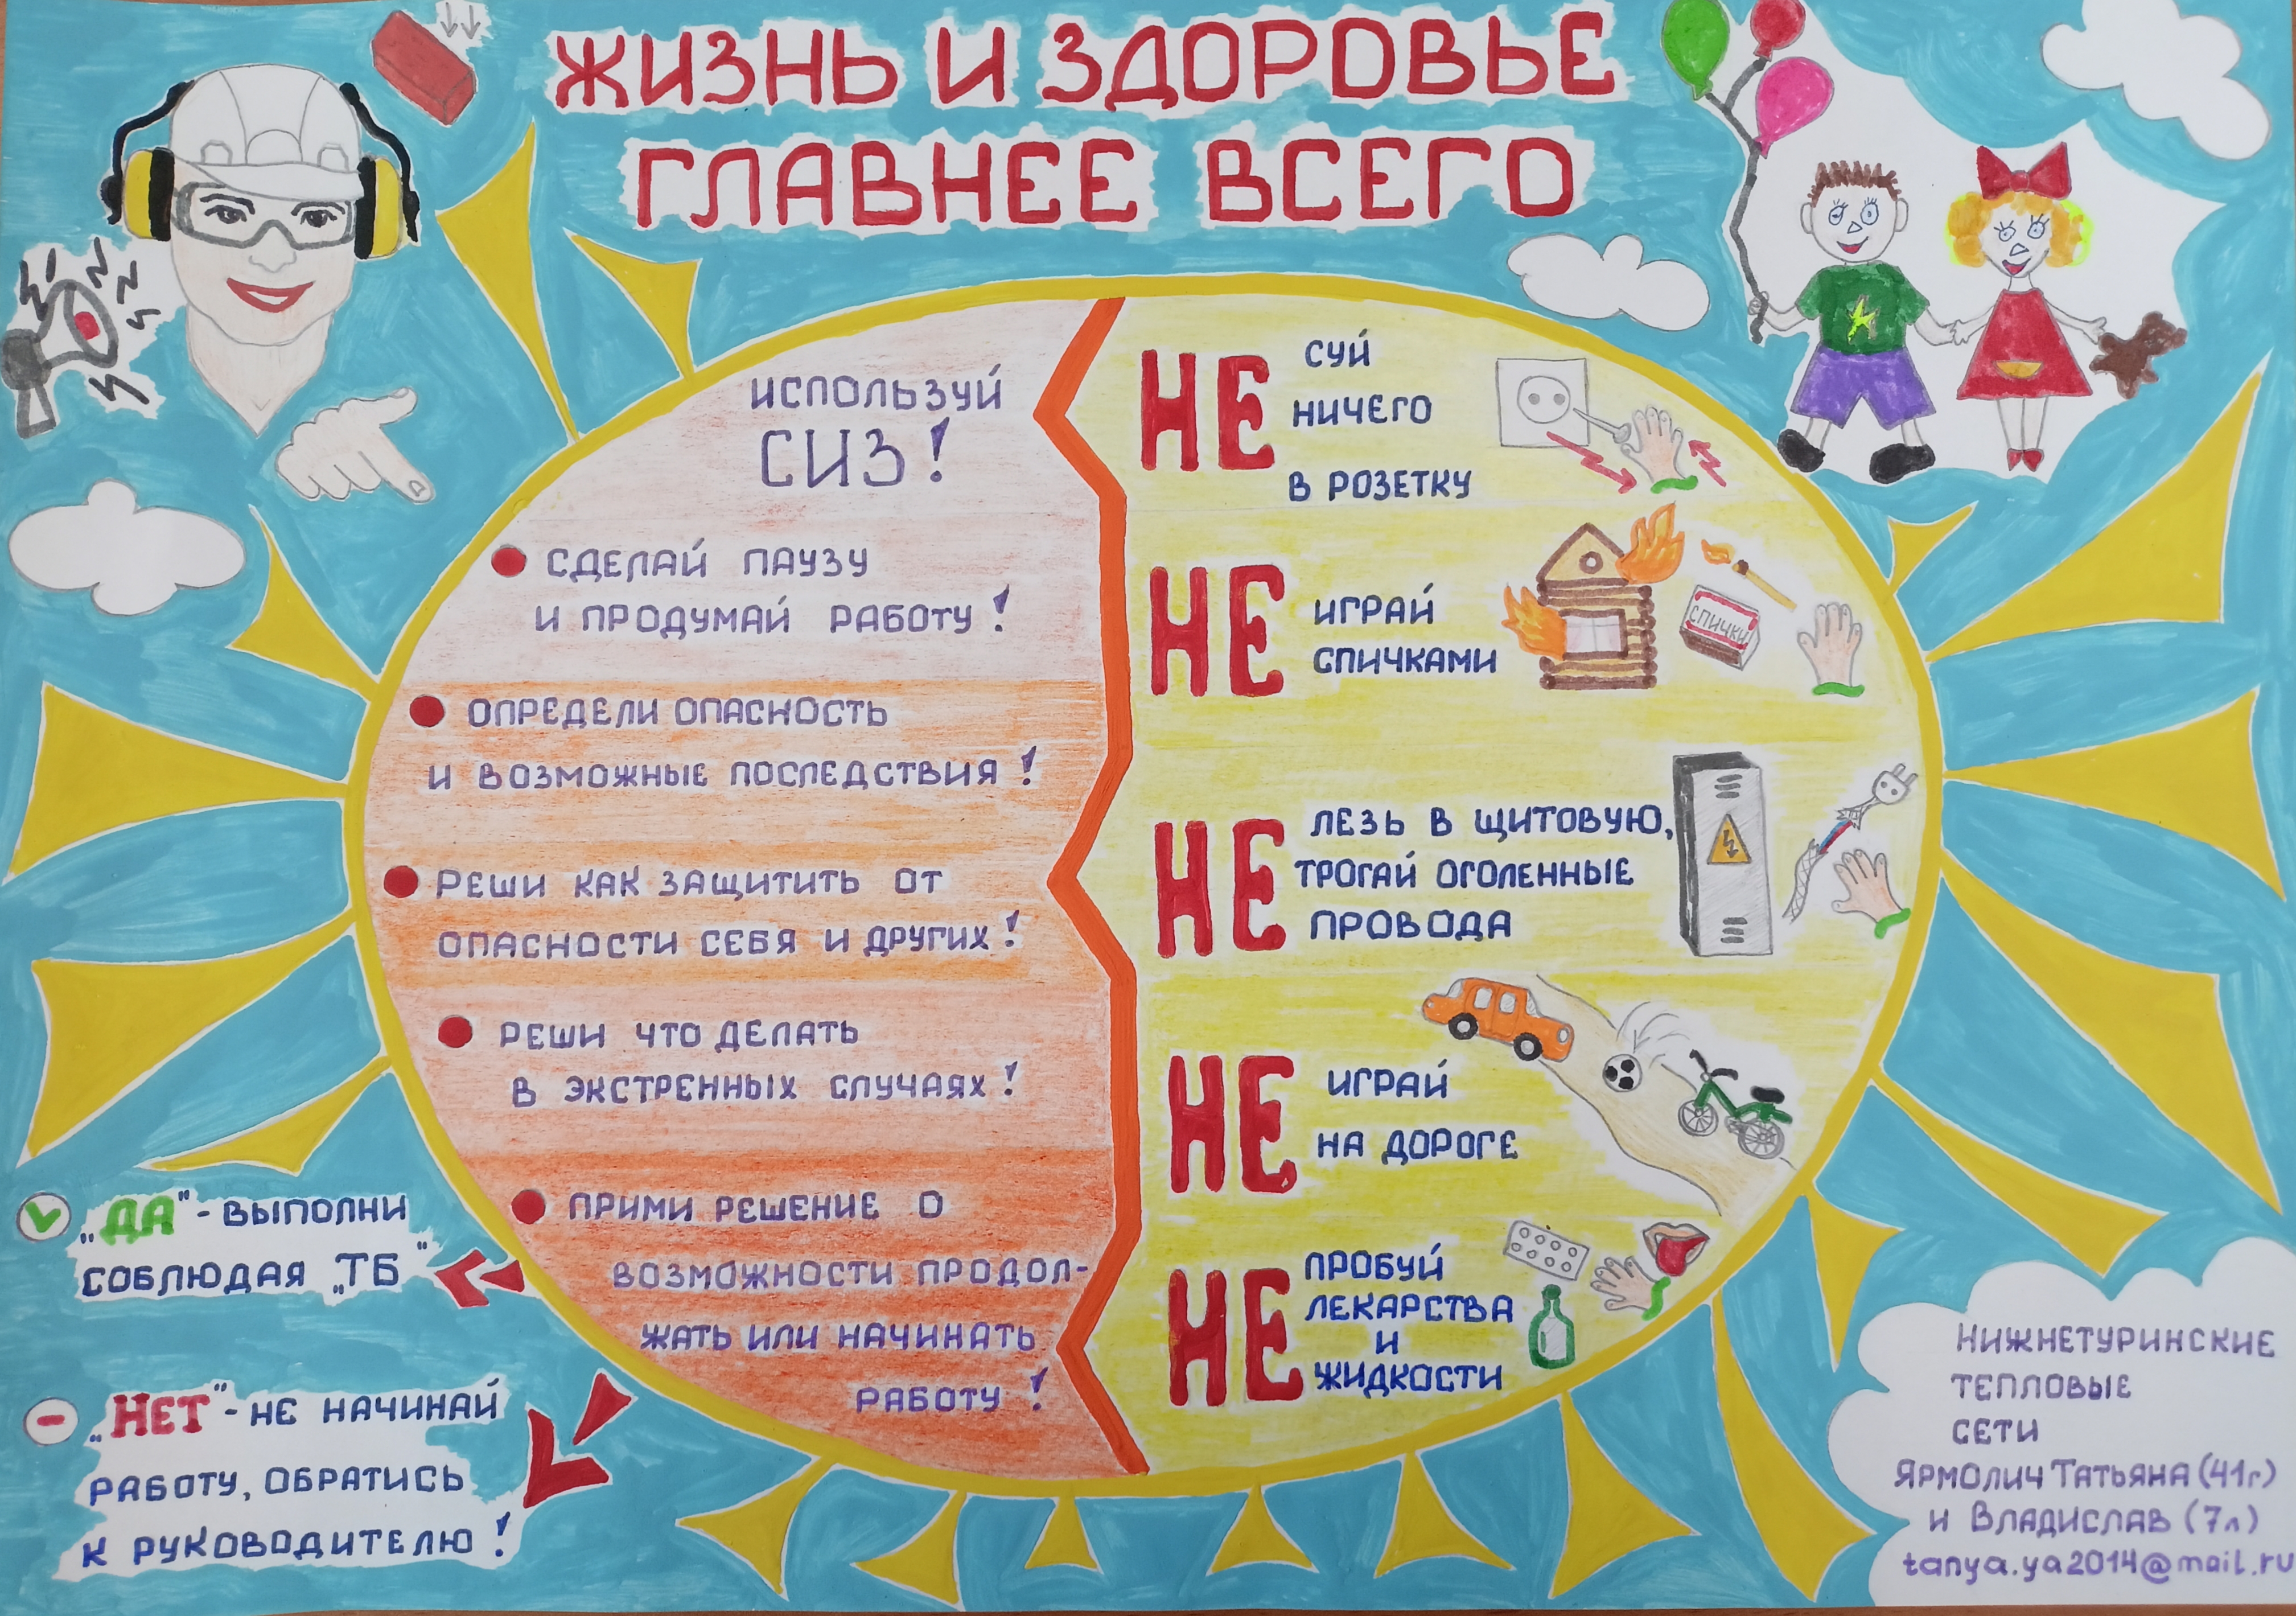 ЖИЗНЬ И ЗДОРОВЬЕ
ГЛАВНЕЕ ВСЕГО
ИСПОЛЬЗУЙ
СИЗ!
СДЕЛАЙ ПАУЗУ
И ПРОДУМАЙ РАБОТУ!
ОПРЕДЕЛИ ОПАСНОСТЬ
И ВОЗМОЖНЫЕ ПОСЛЕДСТВИЯ!
РЕШИ КАК ЗАЩИТИТЬ ОТ
ОПАСНОСТИ СЕБЯ И ДРУГИХ!
РЕШИ ЧТО ДЕЛАТЬ
В ЭКСТРЕННЫХ СЛУЧАЯХ!
ПРИМИ РЕШЕНИЕ О
ВОЗМОЖНОСТИ ПРОДОЛ-
ЖАТЬ ИЛИ НАЧИНАТЬ
РАБОТУ!
НЕ СУЙ
НИЧЕГО
В РОЗЕТКУ
НЕ ИГРАЙ
СПИЧКАМИ
СПИЧКИ
НЕ ЛЕЗЬ В ЩИТОВУЮ,
ТРОГАЙ ОГОЛЕННЫЕ
ПРОВОДА
НЕ ИГРАЙ
НА ДОРОГЕ
НЕ ПРОБУЙ
ЛЕКАРСТВА
И
ЖИДКОСТИ
„ДА" - ВЫПОЛНИ
СОБЛЮДАЯ „ТБ"
„НЕТ" - НЕ НАЧИНАЙ
РАБОТУ, ОБРАТИСЬ
К РУКОВОДИТЕЛЮ!
НИЖНЕТУРИНСКИЕ
ТЕПЛОВЫЕ
СЕТИ
ЯРМОЛИЧ ТАТЬЯНА (41г)
И ВЛАДИСЛАВ (7л)
tanya.ya2014@mail.ru